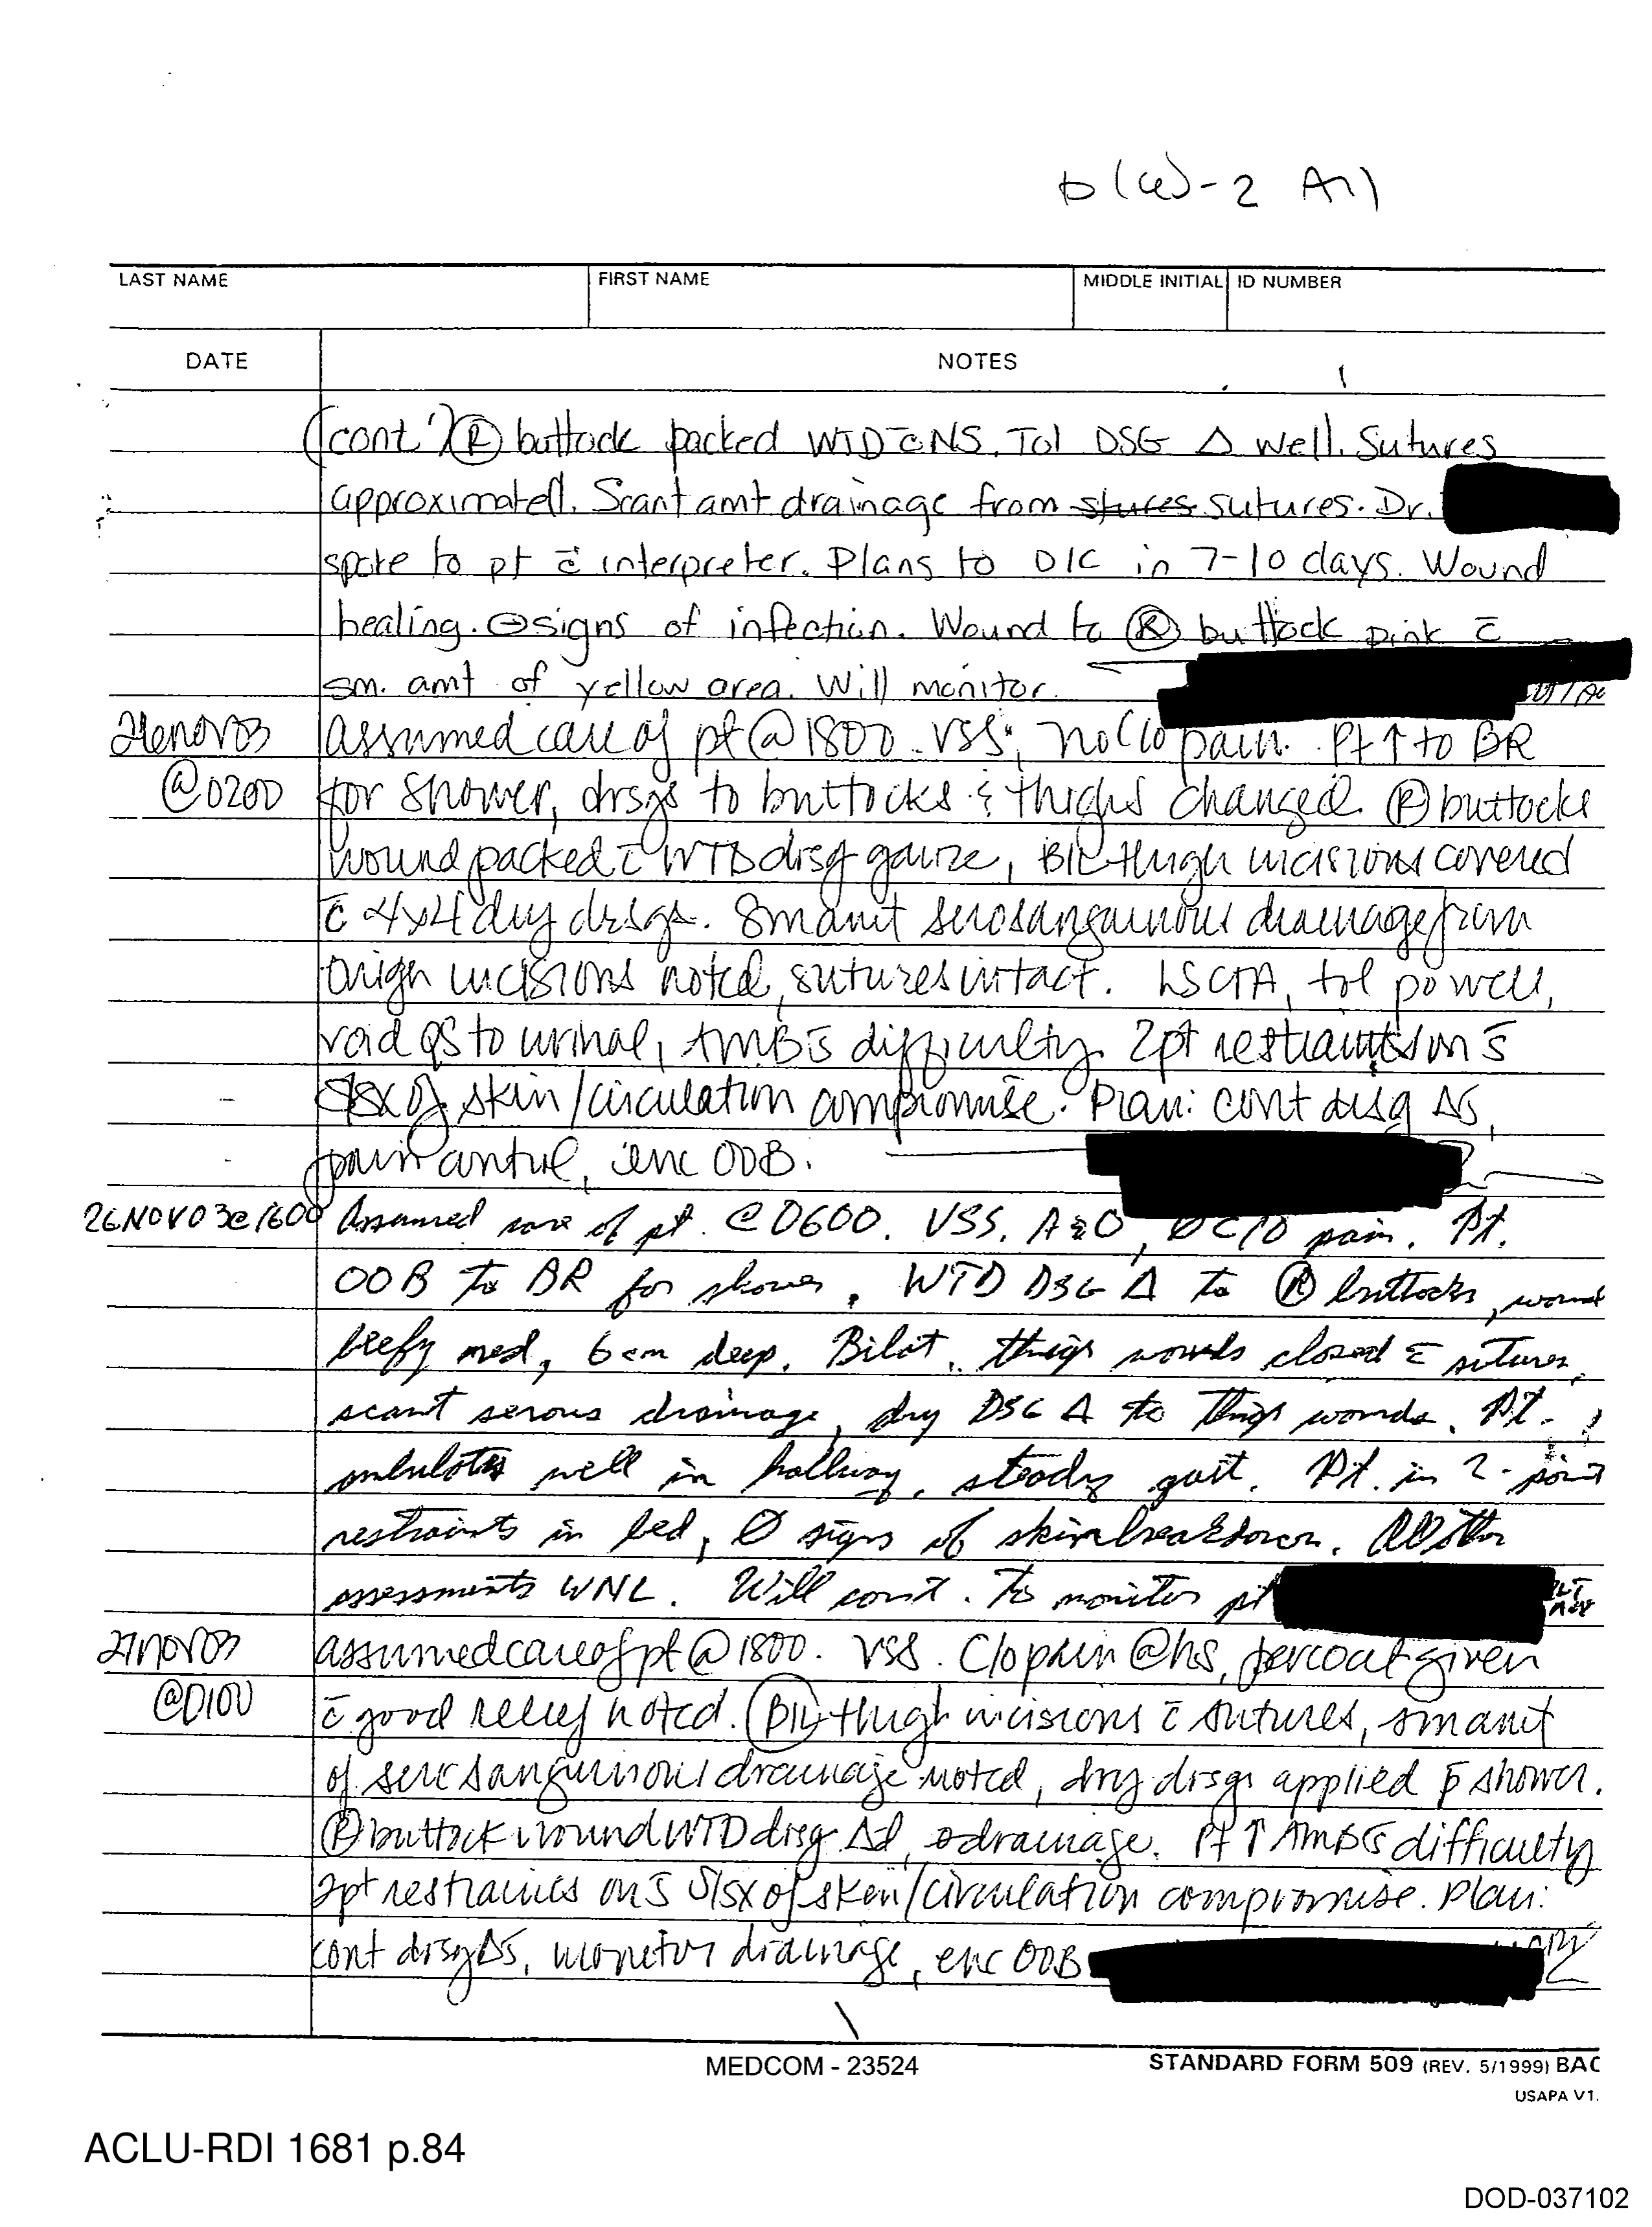 b(6)-2 All
LAST NAME FIRST NAME MIDDLE INITIAL ID NUMBER
DATE NOTES
(cont') Ⓡ buttock packed WTD c̄ NS. Tol DSG Δ well. Sutures
approximated. Scant amt drainage from stures sutures. Dr.
spoke to pt c̄ interpreter. Plans to D/C in 7-10 days. Wound
healing. ⊖ signs of infection. Wound to Ⓡ buttock pink c̄
sm. amt of yellow area. Will monitor.
26NOV03 assumed care of pt @ 1800. VSS, no c/o pain. Pt ↑ to BR
@0200 for shower, drsgs to buttocks & thighs changed. Ⓡ buttocks
wound packed c̄ WTD drsg gauze, BIL thigh incisions covered
c̄ 4x4 dry drsgs. Sm amt serosanguinous drainage from
thigh incisions noted, sutures intact. LSCTA, tol po well,
void QS to urinal, AMB s̄ difficulty. 2pt restraints on s̄
S/Sx of skin/circulation compromise. Plan: cont drsg Δs,
pain control, enc OOB.
26NOV03@1600 Assumed care of pt. @ 0600. VSS, A&O, ∅ C/O pain. Pt.
OOB to BR for shower. WTD DSG Δ to Ⓡ buttocks, wound
beefy red, 6cm deep. Bilat. thigh wounds closed c̄ sutures,
scant serous drainage, dry DSG Δ to thigh wounds. Pt.
ambulates well in hallway, steady gait. Pt. in 2-point
restraints in bed, ∅ signs of skin breakdown. All other
assessments WNL. Will cont. to monitor pt
27NOV03 assumed care of pt @ 1800. VSS. C/o pain @hs, percocet given
@0100 c̄ good relief noted. BIL thigh incisions c̄ sutures, sm amt
of serosanguinous drainage noted, dry drsgs applied p̄ shower.
Ⓡ buttock wound WTD drsg Δd, ∅ drainage. Pt ↑ AMB s̄ difficulty
2pt restraints on s̄ S/Sx of skin/circulation compromise. Plan:
cont drsg Δs, monitor drainage, enc OOB
MEDCOM - 23524
STANDARD FORM 509 (REV. 5/1999) BAC
USAPA V1.
ACLU-RDI 1681 p.84
DOD-037102